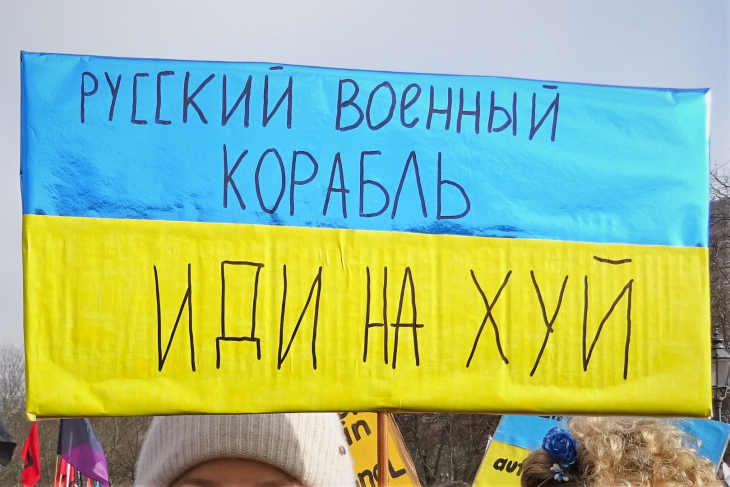 РУССКИЙ ВОЕННЫЙ
КОРАБЛЬ
ИДИ НА ХУЙ
in